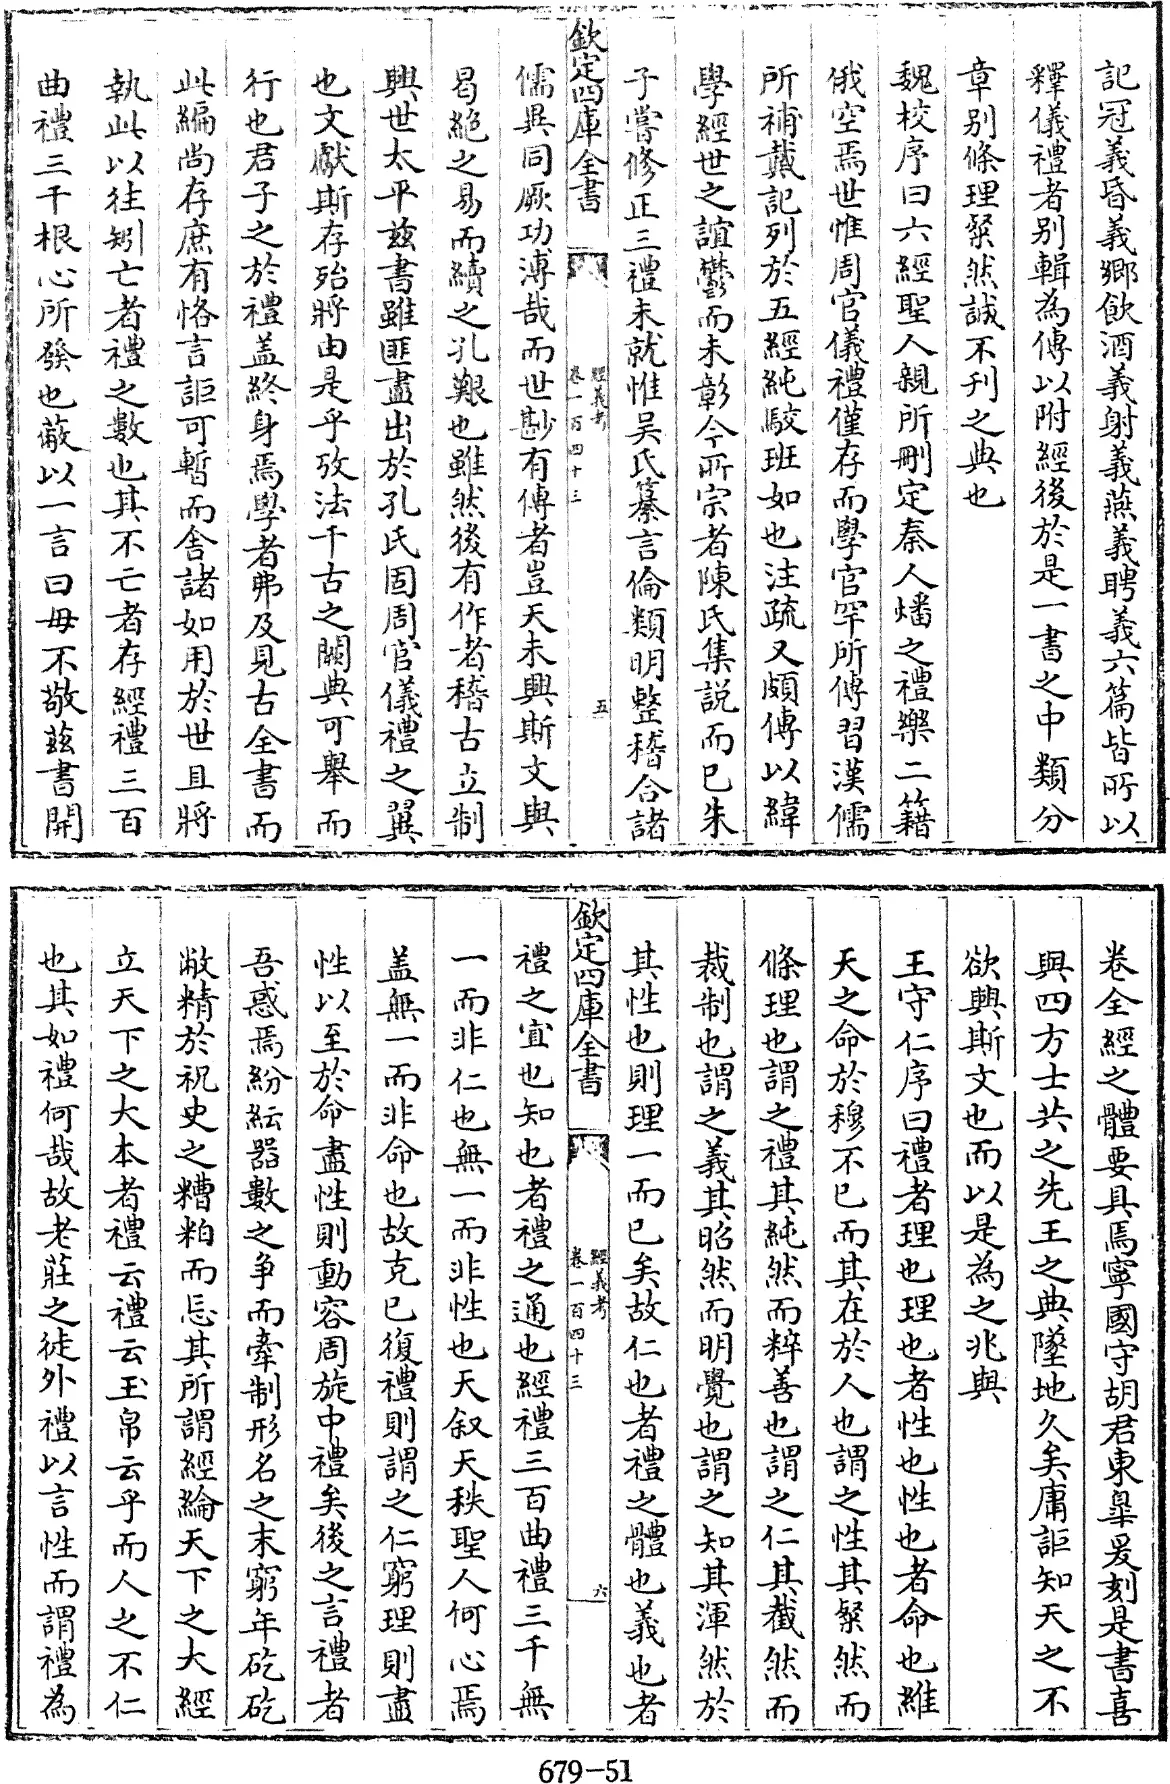 記冠義昏義鄉飲酒義射義燕義聘義六篇皆所以
釋儀禮者别輯為傳以附經後於是一書之中類分
章别條理粲然誠不刋之典也
魏校序曰六經聖人親所刪定秦人燔之禮樂二籍
俄空焉世惟周官儀禮僅存而學官罕所傳習漢儒
所補戴記列於五經純駁班如也注疏又頗傅以緯
學經世之誼鬱而未彰今所宗者陳氏集説而已朱
子嘗修正三禮未就惟吴氏纂言倫類明整稽合諸
欽定四庫全書
經義考
卷一百四十三
五
儒異同厥功溥哉而世尠有傳者豈天未興斯文與
曷絶之易而續之孔艱也雖然後有作者稽古立制
興世太平兹書雖匪盡出於孔氏固周官儀禮之翼
也文獻斯存殆將由是乎攷法千古之闕典可舉而
行也君子之於禮盖終身焉學者弗及見古全書而
此編尚存庶有恪言詎可暫而舍諸如用於世且將
執此以往矧亡者禮之數也其不亡者存經禮三百
曲禮三千根心所發也蔽以一言曰毋不敬兹書開
卷全經之體要具焉寧國守胡君東皋爰刻是書喜
與四方士共之先王之典墜地久矣庸詎知天之不
欲興斯文也而以是為之兆與
王守仁序曰禮者理也理也者性也性也者命也維
天之命於穆不已而其在於人也謂之性其粲然而
條理也謂之禮其純然而粹善也謂之仁其截然而
裁制也謂之義其昭然而明覺也謂之知其渾然於
其性也則理一而已矣故仁也者禮之體也義也者
欽定四庫全書
經義考
卷一百四十三
六
禮之宜也知也者禮之通也經禮三百曲禮三千無
一而非仁也無一而非性也天叙天秩聖人何心焉
盖無一而非命也故克已復禮則謂之仁窮理則盡
性以至於命盡性則動容周旋中禮矣後之言禮者
吾惑焉紛紜器數之争而牽制形名之末窮年矻矻
敝精於祝史之糟粕而忘其所謂經綸天下之大經
立天下之大本者禮云禮云玉帛云乎而人之不仁
也其如禮何哉故老莊之徒外禮以言性而謂禮為
679-51